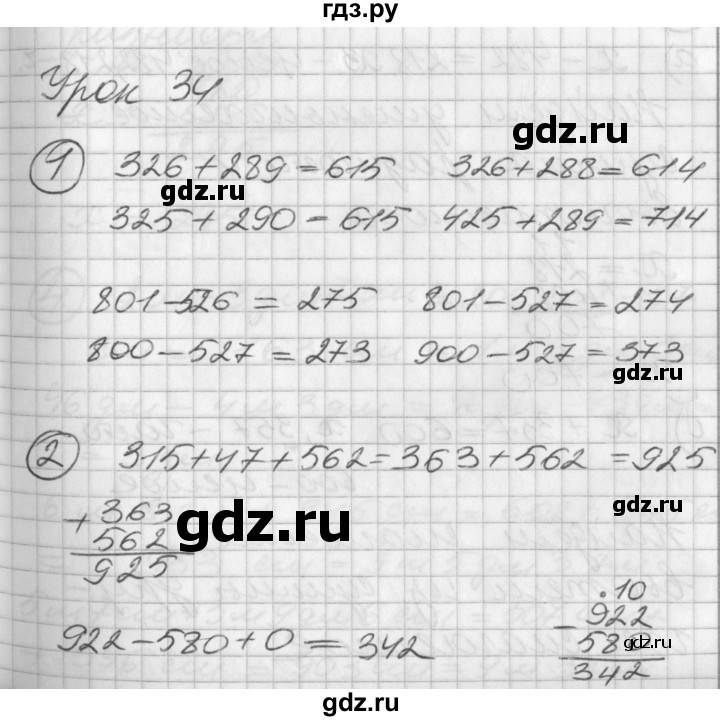 гдз.ру
Урок 34
gdz.ru
1 326+289=615 326+288=614
gdz.ru
325+290=615 425+289=714
801-526=275 801-527=274
800-527=273 900-527=373
gdz.ru
2 315+47+562=363+562=925
+363
562
925
gdz.ru
gdz.ru
.10
922-580+0=342 -922
580
gdz.ru
342
gdz.ru